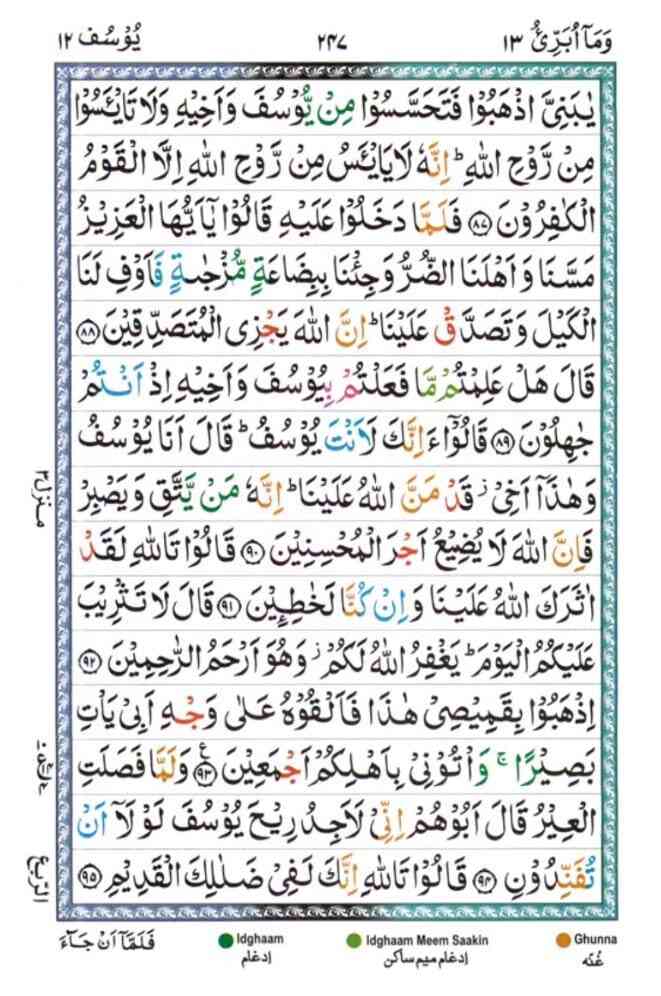 وَمَآ اُبَرِّئُ ١٣
٢٤٧
يُوْسُف ١٢
يٰبَنِيَّ اذْهَبُوْا فَتَحَسَّسُوْا مِنْ يُّوْسُفَ وَاَخِيْهِ وَلَا تَايْـَٔسُوْا
مِنْ رَّوْحِ اللّٰهِ ؕ اِنَّهٗ لَا يَايْـَٔسُ مِنْ رَّوْحِ اللّٰهِ اِلَّا الْقَوْمُ
الْكٰفِرُوْنَ ﴿٨٧﴾ فَلَمَّا دَخَلُوْا عَلَيْهِ قَالُوْا يٰۤاَيُّهَا الْعَزِيْزُ
مَسَّنَا وَاَهْلَنَا الضُّرُّ وَجِئْنَا بِبِضَاعَةٍ مُّزْجٰىةٍ فَاَوْفِ لَنَا
الْكَيْلَ وَتَصَدَّقْ عَلَيْنَا ؕ اِنَّ اللّٰهَ يَجْزِى الْمُتَصَدِّقِيْنَ ﴿٨٨﴾
قَالَ هَلْ عَلِمْتُمْ مَّا فَعَلْتُمْ بِيُوْسُفَ وَاَخِيْهِ اِذْ اَنْتُمْ
جٰهِلُوْنَ ﴿٨٩﴾ قَالُوْۤا ءَاِنَّكَ لَاَنْتَ يُوْسُفُ ؕ قَالَ اَنَا يُوْسُفُ
وَهٰذَاۤ اَخِيْ ؗ قَدْ مَنَّ اللّٰهُ عَلَيْنَا ؕ اِنَّهٗ مَنْ يَّتَّقِ وَيَصْبِرْ
فَاِنَّ اللّٰهَ لَا يُضِيْعُ اَجْرَ الْمُحْسِنِيْنَ ﴿٩٠﴾ قَالُوْا تَاللّٰهِ لَقَدْ
اٰثَرَكَ اللّٰهُ عَلَيْنَا وَاِنْ كُنَّا لَخٰطِـِٕيْنَ ﴿٩١﴾ قَالَ لَا تَثْرِيْبَ
عَلَيْكُمُ الْيَوْمَ ؕ يَغْفِرُ اللّٰهُ لَكُمْ ؗ وَهُوَ اَرْحَمُ الرّٰحِمِيْنَ ﴿٩٢﴾
اِذْهَبُوْا بِقَمِيْصِيْ هٰذَا فَاَلْقُوْهُ عَلٰى وَجْهِ اَبِيْ يَاْتِ
بَصِيْرًا ۚ وَاْتُوْنِيْ بِاَهْلِكُمْ اَجْمَعِيْنَ ﴿٩٣﴾ ع وَلَمَّا فَصَلَتِ
الْعِيْرُ قَالَ اَبُوْهُمْ اِنِّيْ لَاَجِدُ رِيْحَ يُوْسُفَ لَوْلَاۤ اَنْ
تُفَنِّدُوْنِ ﴿٩٤﴾ قَالُوْا تَاللّٰهِ اِنَّكَ لَفِيْ ضَلٰلِكَ الْقَدِيْمِ ﴿٩٥﴾
منزل ٣
الربع
فَلَمَّاۤ اَنْ جَآءَ
Idghaam
ادغام
Idghaam Meem Saakin
ادغام میم ساکن
Ghunna
غُنّه